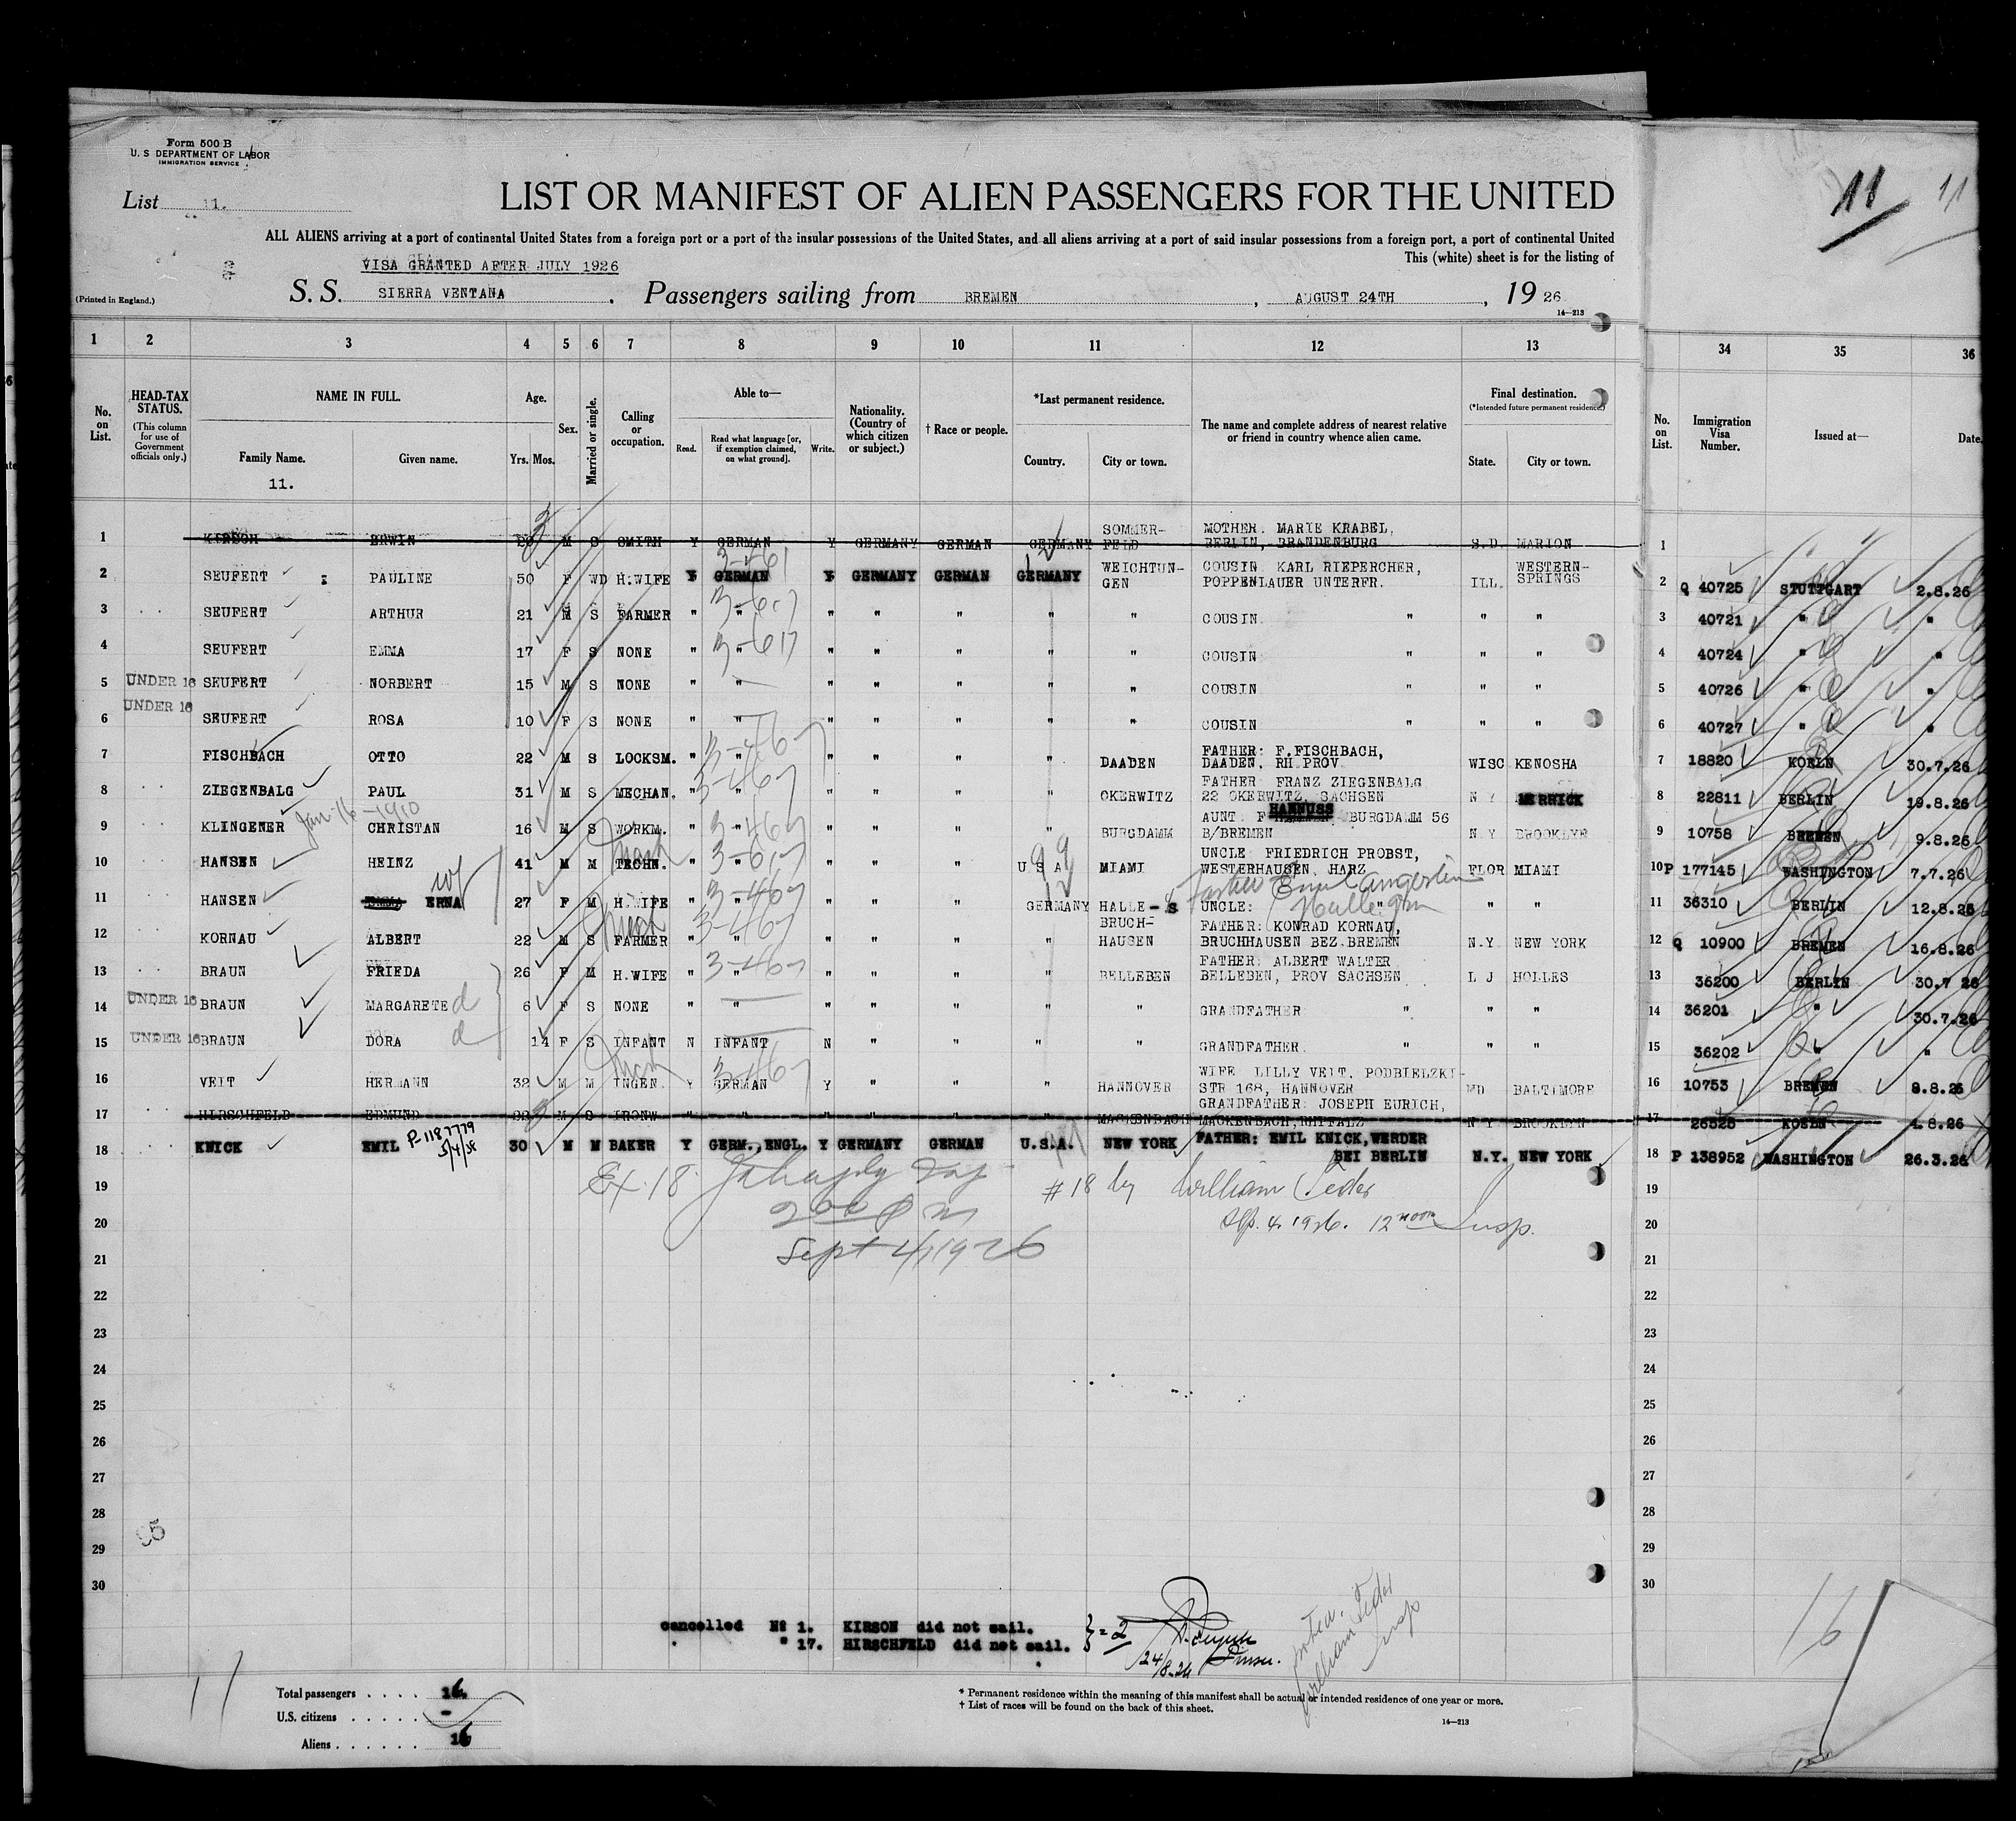 Form 500 B
U. S DEPARTMENT OF LABOR
IMMIGRATION SERVICE
List 11.
LIST OR MANIFEST OF ALIEN PASSENGERS FOR THE UNITED
11 11
ALL ALIENS arriving at a port of continental United States from a foreign port or a port of the insular possessions of the United States, and all aliens arriving at a port of said insular possessions from a foreign port, a port of continental United
This (white) sheet is for the listing of
VISA GRANTED AFTER JULY 1926
(Printed in England.)
S. S. SIERRA VENTANA, Passengers sailing from BREMEN, AUGUST 24TH, 19 26
14—213
1 2 3 4 5 6 7 8 9 10 11 12 13 34 35 36
No. on List.
HEAD-TAX STATUS.
(This column for use of Government officials only.)
NAME IN FULL.
Family Name. Given name.
11.
Age.
Yrs. Mos.
Sex.
Married or single.
Calling or occupation.
Able to—
Read. Read what language [or, if exemption claimed, on what ground]. Write.
Nationality. (Country of which citizen or subject.)
† Race or people.
*Last permanent residence.
Country. City or town.
The name and complete address of nearest relative or friend in country whence alien came.
Final destination.
(*Intended future permanent residence.)
State. City or town.
No. on List.
Immigration Visa Number.
Issued at—
Date.
1 KIRSCH ERWIN M S SMITH Y GERMAN Y GERMANY GERMAN GERMANY SOMMER-FELD MOTHER. MARIE KRABEL, BERLIN, BRANDENBURG S.D. MARION 1
2 SEUFERT : PAULINE 50 F WD H.WIFE Y GERMAN Y GERMANY GERMAN GERMANY WEICHTUN-GEN COUSIN KARL RIEPERCHER, POPPENLAUER UNTERFR. ILL. WESTERN-SPRINGS 2 Q 40725 STUTTGART 2.8.26
3 SEUFERT ARTHUR 21 M S FARMER " " " " " " " COUSIN. " " " 3 40721 " "
4 SEUFERT EMMA 17 F S NONE " " " " " " " COUSIN " " " 4 40724 " "
5 UNDER 16 SEUFERT NORBERT 15 M S NONE " " " " " " " COUSIN " " " 5 40726 " "
6 UNDER 16 SEUFERT ROSA 10 F S NONE " " " " " " " COUSIN " " " 6 40727 " "
7 FISCHBACH OTTO 22 M S LOCKSM. " " " " " " DAADEN FATHER: F.FISCHBACH, DAADEN, RH.PROV. WISC KENOSHA 7 18820 KOELN 30.7.26
8 ZIEGENBALG PAUL 31 M S MECHAN. " " " " " " OKERWITZ FATHER FRANZ ZIEGENBALG 22 OKERWITZ, SACHSEN N Y MERRICK 8 22811 BERLIN 19.8.26
Jan-16-1910
9 KLINGENER CHRISTAN 16 M S WORKM. " " " " " " BURGDAMM AUNT F HANNUSS BURGDAMM 56 B/BREMEN N.Y BROOKLYN 9 10758 BREMEN 9.8.26
10 HANSEN HEINZ 41 M M TECHN. " " " " " U S A MIAMI UNCLE FRIEDRICH PROBST, WESTERHAUSEN, HARZ FLOR MIAMI 10 P 177145 WASHINGTON 7.7.26
11 HANSEN ERNA 27 F M H.WIFE " " " " " GERMANY HALLE-S UNCLE: " " " 11 36310 BERLIN 12.8.26
12 KORNAU ALBERT 22 M S FARMER " " " " " " BRUCH-HAUSEN FATHER: KONRAD KORNAU, BRUCHHAUSEN BEZ.BREMEN N.Y NEW YORK 12 Q 10900 BREMEN 16.8.26
13 BRAUN FRIEDA 26 F M H.WIFE " " " " " " BELLEBEN FATHER: ALBERT WALTER BELLEBEN, PROV SACHSEN L J HOLLES 13 36200 BERLIN 30.7 26
14 UNDER 16 BRAUN MARGARETE d 6 F S NONE " " " " " " " GRANDFATHER " " " 14 36201 " 30.7.26
15 UNDER 16 BRAUN DORA d 14 F S INFANT N INFANT N " " " " GRANDFATHER. " " " 15 36202 " "
16 VEIT HERMANN 32 M M INGEN. Y GERMAN Y " " " HANNOVER WIFE LILLY VEIT, PODBIELZKI-STR 168, HANNOVER MD BALTIMORE 16 10753 BREMEN 9.8.26
17 HIRSCHFELD EDMUND M S IRONW " " " " " " MACKENBACH GRANDFATHER: JOSEPH EURICH, MACKENBACH, RHPFALZ N Y BROOKLYN 17 26525 KOELN 4.8.26
18 KNICK EMIL P-1187779 5/4/38 30 M M BAKER Y GERM.,ENGL. Y GERMANY GERMAN U.S.A. NEW YORK FATHER: EMIL KNICK, WERDER BEI BERLIN N.Y. NEW YORK 18 P 138952 WASHINGTON 26.3.26
19 Ex. 18 #18 by William Seder 19
20 2 00 P m Sep. 4. 1926. 12 noon Insp. 20
21 Sept 4/1926 21
22 22
23 23
24 24
25 25
26 26
27 27
28 28
29 29
30 30
cancelled No 1. KIRSON did not sail.
" 17. HIRSCHFELD did not sail. } = 2
24/8.26
William Seder
Insp
16
11
Total passengers . . . . 16.
U.S. citizens . . . . . -
Aliens . . . . . . 16
* Permanent residence within the meaning of this manifest shall be actual or intended residence of one year or more.
† List of races will be found on the back of this sheet.
14—213